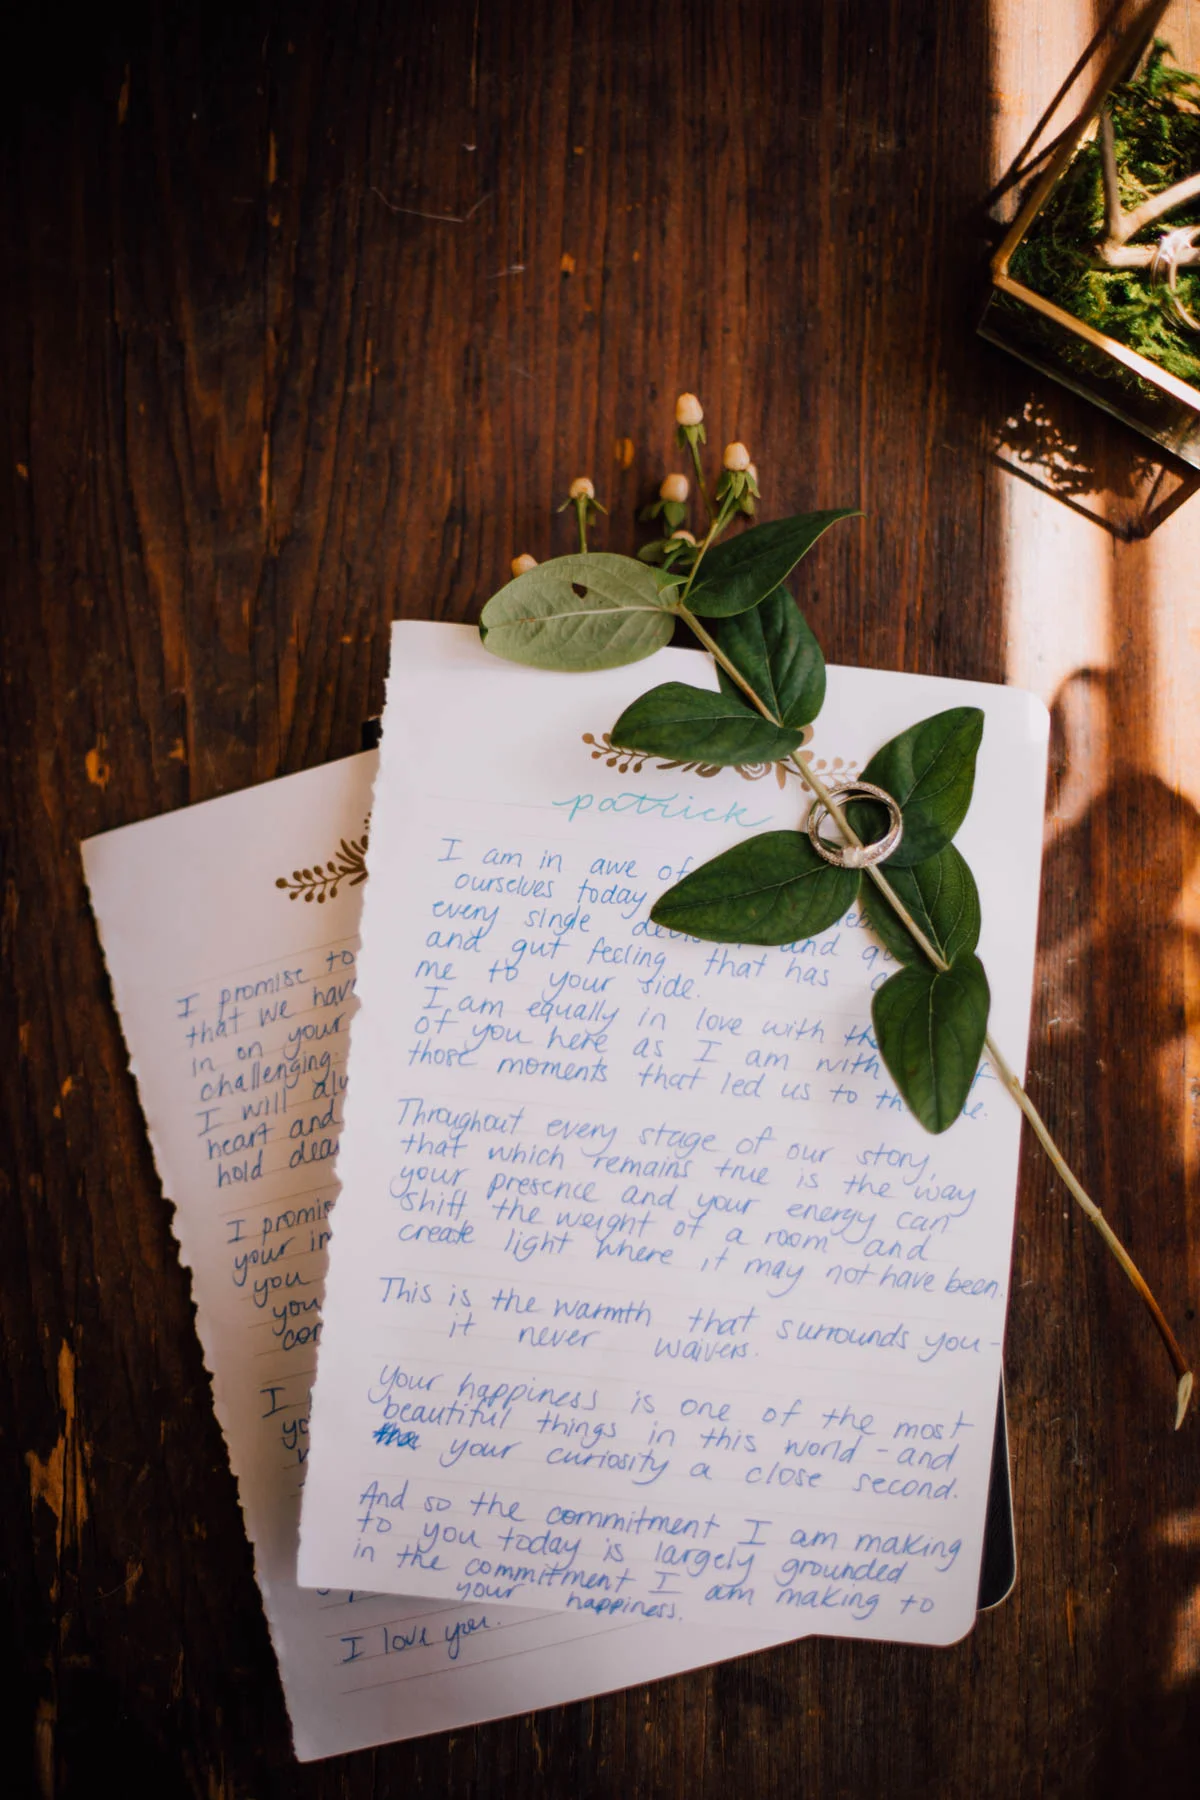 patrick
I am in awe of
ourselves today
every single and
and gut feeling that has
me to your side.
I am equally in love with
of you here as I am with
those moments that led us to
Throughout every stage of our story,
that which remains true is the way
your presence and your energy can
shift the weight of a room and
create light where it may not have been.
This is the warmth that surrounds you -
it never waivers.
Your happiness is one of the most
beautiful things in this world - and
your curiosity a close second.
And so the commitment I am making
to you today is largely grounded
in the commitment I am making to
your happiness.
I promise to
that we hav
in on your
challenging
I will
heart and
hold
I promis
your in
you
you
I
I love you.